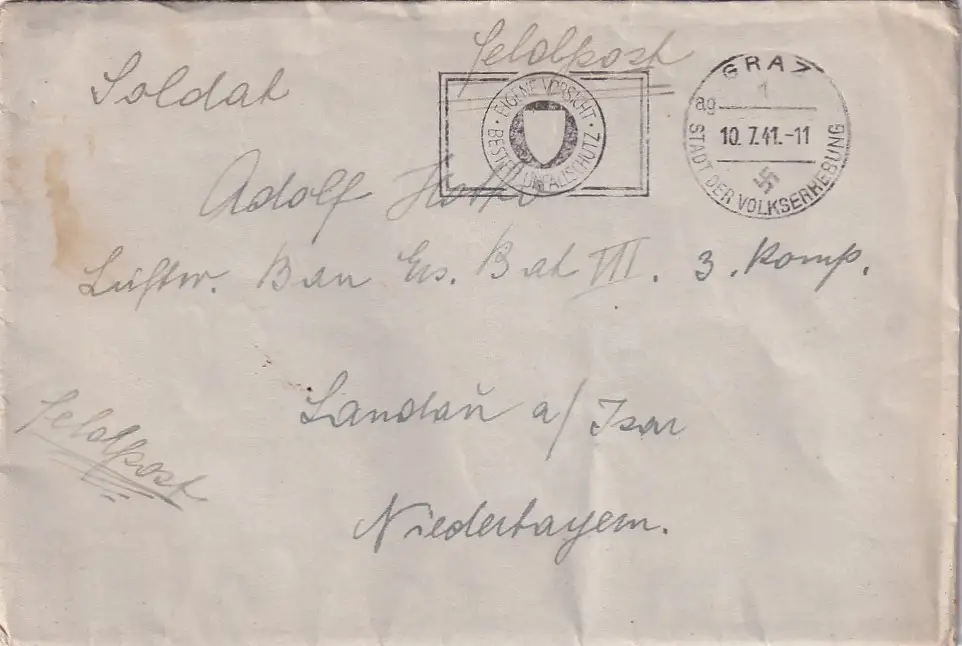 Feldpost
Soldat
EIGENE VORSICHT · BESTER UNFALLSCHUTZ ·
GRAZ
1
ag
10.7.41.-11
STADT DER VOLKSERHEBUNG
Adolf
Luftw. Bau Ers. Bat VII. 3. Komp.
Landau a/ Isar
Feldpost
Niederbayern.